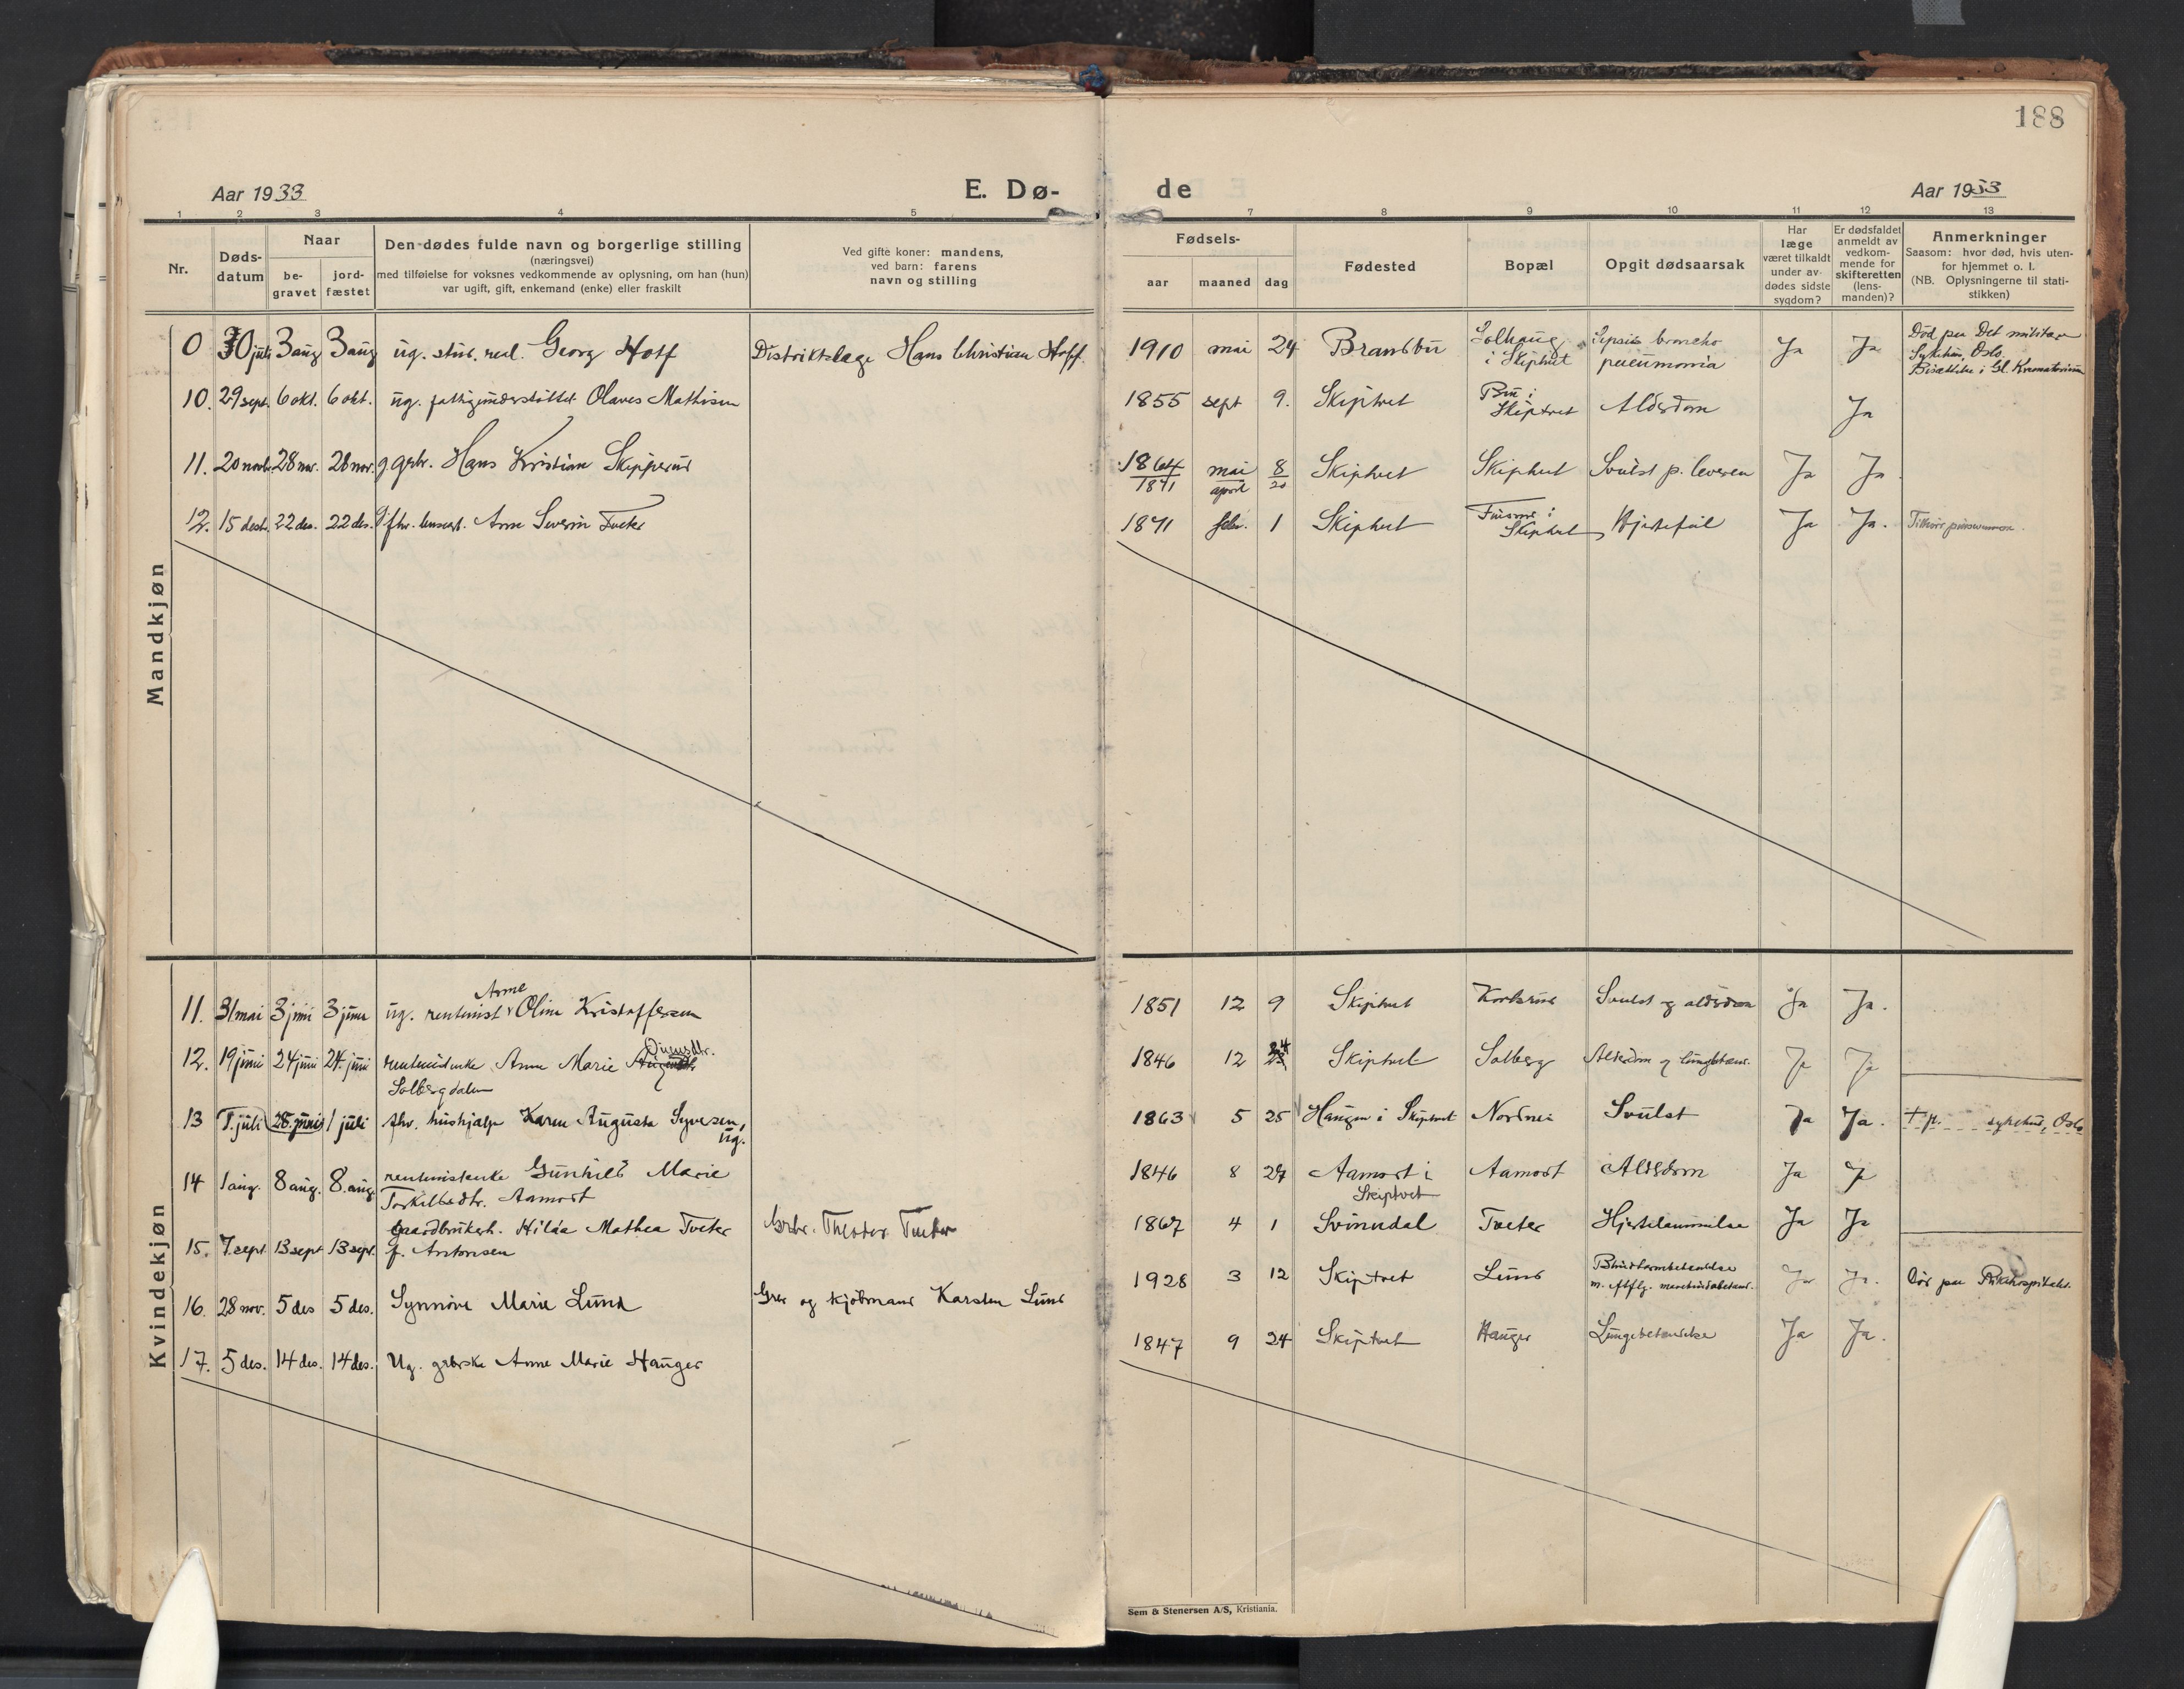 188
Aar 1933
E. Dø-
de
Aar 1933
1 2 3 4 5 7 8 9 10 11 12 13
Nr.
Døds-
datum
Naar
be-
gravet
jord-
fæstet
Den dødes fulde navn og borgerlige stilling
(næringsvei)
med tilføielse for voksnes vedkommende av oplysning, om han (hun)
var ugift, gift, enkemand (enke) eller fraskilt
Ved gifte koner: mandens,
ved barn: farens
navn og stilling
Fødsels-
aar
maaned
dag
Fødested
Bopæl
Opgit dødsaarsak
Har
læge
været tilkaldt
under av-
dødes sidste
sygdom?
Er dødsfaldet
anmeldt av
vedkom-
mende for
skifteretten
(lens-
manden)?
Anmerkninger
Saasom: hvor død, hvis uten-
for hjemmet o. l.
(NB. Oplysningerne til stati-
stikken)
Mandkjøn
0 30 juli 3 aug 3 aug ug. stud. real. Georg Hoff Distriktslæge Hans Christian Hoff. 1910 mai 24 Brandbu Solhaug i Skiptvet Sepsis broncho pneumonia Ja Ja Død paa Det militære Sykehus, Oslo. Bisættelse i Gl. Krematorium
10. 29 sept. 6 okt. 6 okt. ug. fattigunderstøttet Olaves Mathisen 1855 sept 9. Skiptvet i Skiptvet Alderdom Ja
11. 20 novb. 28 nov. 28 nov. g. grbr. Hans Kristian Skipperud 1864 1871 mai april 8 20 Skiptvet Skiptvet Svulst p. leveren Ja Ja
12. 15 desb. 22 des. 22 des. Arne Severin Tveter 1871 febr. 1 Skiptvet i Skiptvet Hjertefeil Ja Ja.
Kvindekjøn
11. 31 mai 3 juni 3 juni ug. rentenist Anne Oline Kristoffersen 1851 12 9 Skiptvet Svulst og alderdom Ja Ja.
12. 19 juni 24 juni 24. juni Anne Marie Solbergdalen 1846 12 24 Skiptvet Solberg Alderdom og lungebetænd. Ja Ja
13 1. juli 28. juni 1 juli fhv. hushjælp Karen Augusta Syversen, ug. 1863 5 25 Haugen i Skiptvet Svulst Ja Ja. † p. sykehus, Oslo
14 1 aug. 8 aug. 8. aug. Gunhild Marie Torkildsdtr. Aamodt 1846 8 27 Aamodt i Skiptvet Aamodt Alderdom Ja Ja
15. 7. sept. 13 sept 13 sept. Gaardbrukerh. Hilda Mathea Tveter f. Antonsen Grbr. Theodor Tveter 1867 4 1 Svinndal Tveter Hjertelammelse Ja Ja
16. 28 nov. 5 des 5 des. Synnøve Marie Lund Grbr og kjøbmand Karsten Lund 1928 3 12 Skiptvet Lund Blindtarmbetændelse Ja Ja. Død paa Rikshospitalet.
17. 5 des. 14 des. 14 des. Ug. grbrske Anne Marie Hauger 1847 9 24 Skiptvet Hauger Lungebetændelse Ja Ja.
Sem & Stenersen A/S, Kristiania.